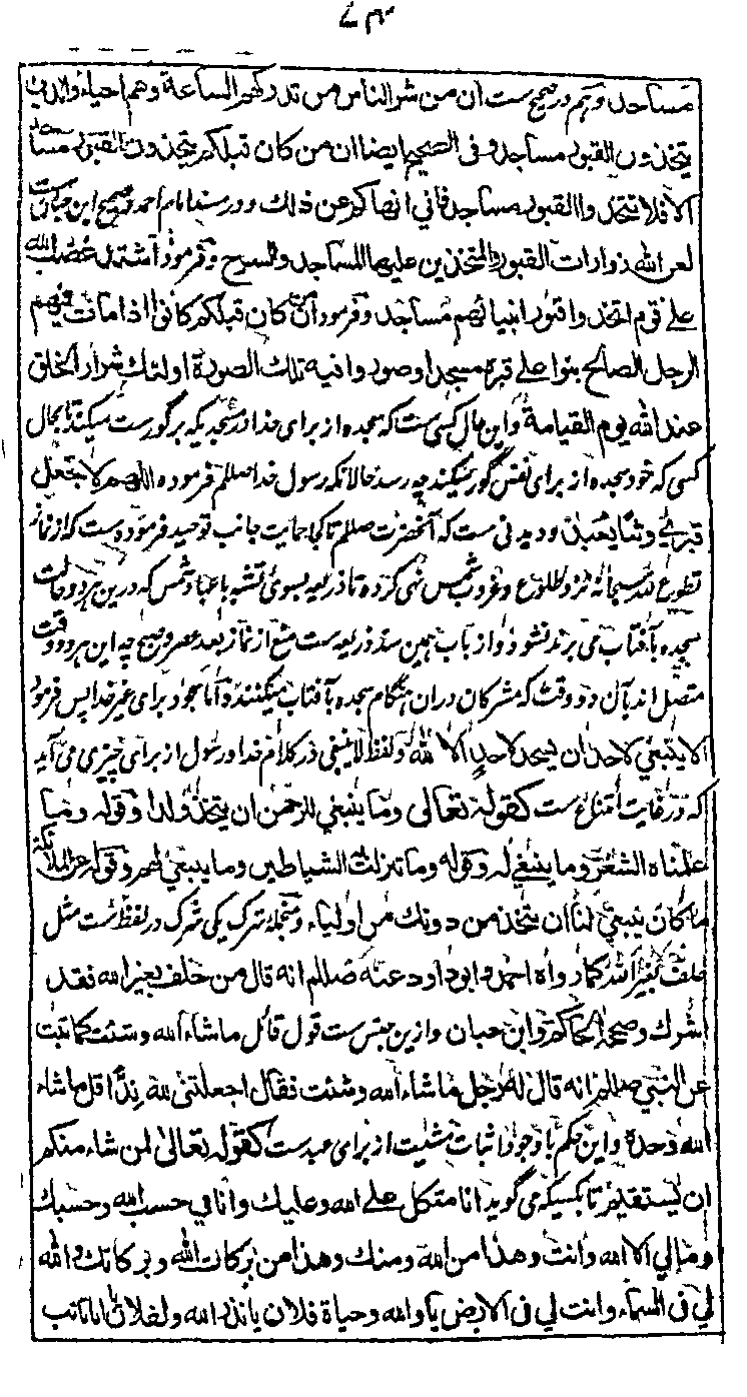 ۷۴
مساجد و هم در صحیح ست ان من شر الناس من تدرکهم الساعة وهم احیاء والذین
یتخذون القبور مساجد و فی الصحیح ایضا ان من کان قبلکم یتخذون القبور مساجد
الا فلا تتخذوا القبور مساجد فانی انهاکم عن ذلك و در مسند امام احمد و صحیح ابن حبان ست
لعن الله زوارات القبور والمتخذین علیها المساجد والسرج و فرمود اشتد غضب الله
علی قوم اتخذوا قبور انبیائهم مساجد و فرمود ان کان قبلکم کانوا اذا مات فیهم
الرجل الصالح بنوا علی قبره مسجدا وصوروا فیه تلك الصورة اولئك شرار الخلق
عند الله یوم القیامة و این حال کسی ست که سجده از برای خدا در مسجدیکه بر گورست میکند تا بحال
کسی که خود سجده از برای نفس گور میکند چه رسد حالانکه رسول خدا صللم فرموده اللهم لا تجعل
قبری وثنا یعبد و دیدنی ست که آنحضرت صللم تا کجا حمایت جانب توحید فرموده ست که از نماز
تطوع لله سبحانه نزد طلوع و غروب شمس نهی کرده تا ذریعه بسوی تشبه بعباد شمس که درین هر دو حالت
سجده بآفتاب می برند نشود و از باب همین سد ذریعه ست منع از نماز بعد عصر و صبح چه این هر دو وقت
متصل اند بآن دو وقت که مشرکان دران هنگام سجده بآفتاب میکنند و اما سجود برای غیر خدا پس فرمود
لا ینبغی لاحد ان یسجد لاحد الا لله و لفظ لا ینبغی در کلام خدا و رسول از برای چیزی می آید
که در غایت امتناع ست کقوله تعالی وما ینبغی للرحمن ان یتخذ ولدا و قوله وما
علمناه الشعر وما ینبغی له و قوله وما تنزلت به الشیاطین وما ینبغی لهم و قوله عن الملائکة
ما کان ینبغی لنا ان نتخذ من دونك من اولیاء و منجمله شرک یکی شرک در لفظ ست مثل
حلف بغیر الله کما رواه احمد و ابو داود عنه صللم انه قال من حلف بغیر الله فقد
اشرك وصححه الحاکم وابن حبان و ازین جنس ست قول قائل ما شاء الله وشئت کما ثبت
عن النبی صللم انه قال له رجل ما شاء الله وشئت فقال اجعلتنی لله ندا قل ما شاء
الله وحده و این حکم با وجود اثبات مشیت از برای عبد ست کقوله تعالی لمن شاء منکم
ان یستقیم تا بکسیکه می گوید انا متکل علی الله وعلیك وانا فی حسب الله وحسبك
ومالی الا الله وانت وهذا من الله ومنك وهذا من برکات الله وبرکاتك والله
لی فی السماء وانت لی فی الارض یا والله وحیاة فلان یا نذرا لله ولفلان